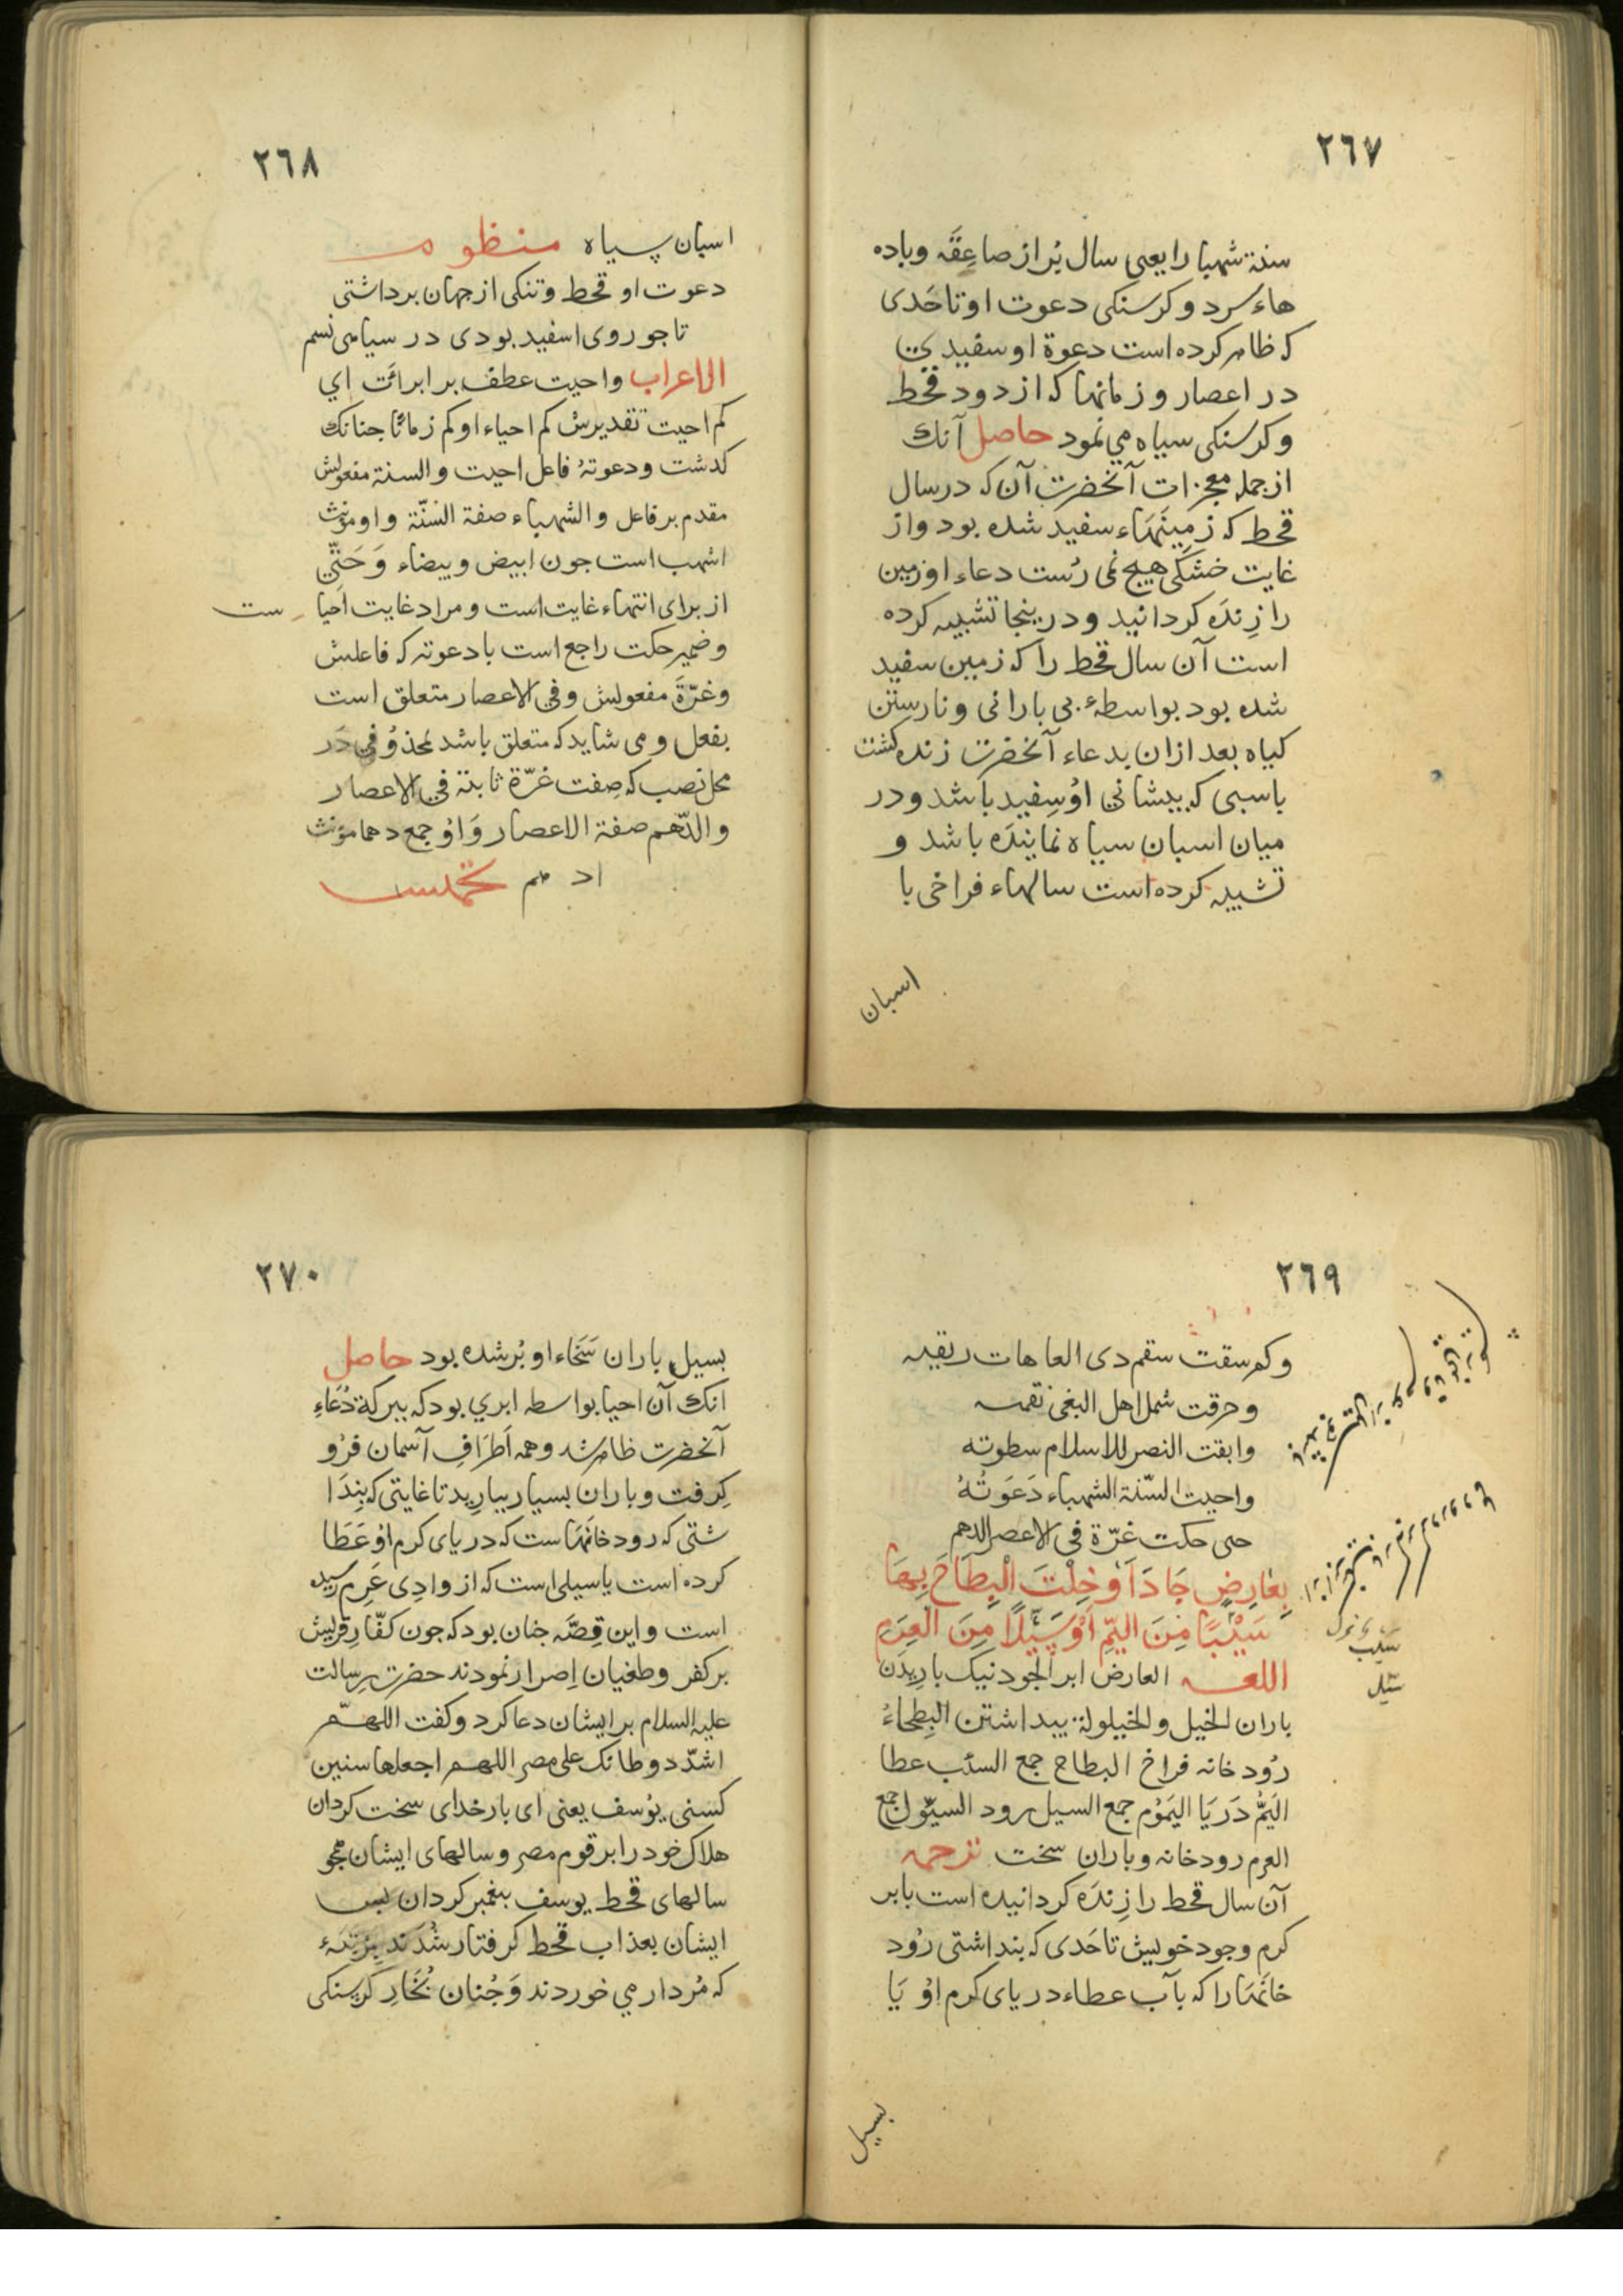 ٢٦٧
سنة شهبا را یعنی سال پُر از صاعِقَه و باده
هاء سرد و کرسنکی دعوت او تا حَدی
که ظاهر کرده است دعوة او سفیدیي
در اعصار و زمانها که از دود قحط
و کرسنکی سیاه می نمود حاصل آنك
از جمله معجزات آنحضرت آن که در سال
قحط که زمِینهَاء سفید شده بود و از
غایت خشکی هیچ نمی رُست دعاء او زمین
را زِندَه کردانید و درینجا تشبیه کرده
است آن سال قحط را که زمین سفید
شده بود بواسطهٔ بی بارانی و نارستن
کیاه بعد ازان بدعاء آنحضرت زنده کشت
باسبی که پیشانی اوُ سِفید باشد و در
میان اسبان سیاه نمایندَه باشد و
تشبیه کرده است سالهاء فراخی با
اسبان
٢٦٨
اسپان سیاه منظوم
دعوت او قحط و تنکی از جهان برداشتی
تا جو روی اسفید بودی در سیاهی نسم
الاعراب واحیت عطف بر ابرائت اي
کم احیت تقدیرش کم احیاء او کم زمانًا جنانك
کدشت و دعوتهُ فاعل احیت والسنة مفعولش
مقدم بر فاعل والشهباء صفة السّنة و او مؤنث
اشهب است جون ابیض و بیضاء وَحَتّي
از برای انتهاء غایت است و مراد غایت اَحیاست
و ضمیر حکت راجع است با دعوته که فاعلش
وغرّةَ مفعولش و في الاعصار متعلق است
بفعل و می شاید که متعلق باشد بمحذوُفی دَر
محل نصب که صِفت غرّة ثابتة في الاعصار
والدّهم صفة الاعصار وَاوُ جمع دهما مؤنث
ادهم تخمیس
٢٦٩
وکم سقت سقم ذی العاهات ریقیه
وحرقت شمل اهل البغي نقمته
وابقت النصر للاسلام سطوته
واحیت السّنة الشهباء دَعَوتُهُ
حتی حکت غرّة فی الاعصر الدهم
بِعَارِضٍ جَادَ اَوْخِلْتَ الْبِطَاحَ بِهَا
سَيْبًا مِنَ الیَمِّ اَوْ سَيْلًا مِنَ الْعَرِمِ
اللغه العارض ابر الجود نیک باریدَن
باران الخیل والخیلولة پیداشتن البِطحاءُ
رُود خانه فراخ البطاح جمع السئب عطا
الیَمُّ دَریَا الیَمُوُم جمع السیل رود السیُول جمع
العرم رودخانه و باران سخت ترجمه
آن سال قحط را زِندَه کردانیده است بابر
کرم وجود خویش تا حَدی که بنداشتی رُود
خانهَا را که بآب عطاء دریای کرم اوُ یَا
سیب
سیل
بسیل
٢٧٠
بسیل باران سَخَاء او پُر شده بود حاصل
انك آن احیا بواسطه ابري بود که ببرکة دُعَاءِ
آنحضرت ظاهر شد و همه اَطرَافِ آسمان فرُو
کِرفت و باران بسیار بیارِید تا غایتی که بِندَا
شتی که رود خانهَا ست که دریای کرم اوُ عَطَا
کرده است یا سیلی است که از وادِی عَرِم رسیده
است و این قِصَّه جنان بود که جون کفّارِ قریش
بر کفر و طغیان اِصرار نمودند حضرت رِسالت
علیه السلام بر ایشان دعا کرد و کفت اللهمّ
اشدّد وطأتک علی مصر اللهم اجعلها سنین
کسني یوُسف یعنی ای بار خدای سخت کردان
هلاک خود را بر قوم مصر و سالهای ایشان همجو
سالهای قحط یوسف بیغمبر کردان بس
ایشان بعذاب قحط کرفتار شُدَند بِمَرتبَهٔ
که مُردار می خوردند وَجُنان بُخَارِ کرسنکی